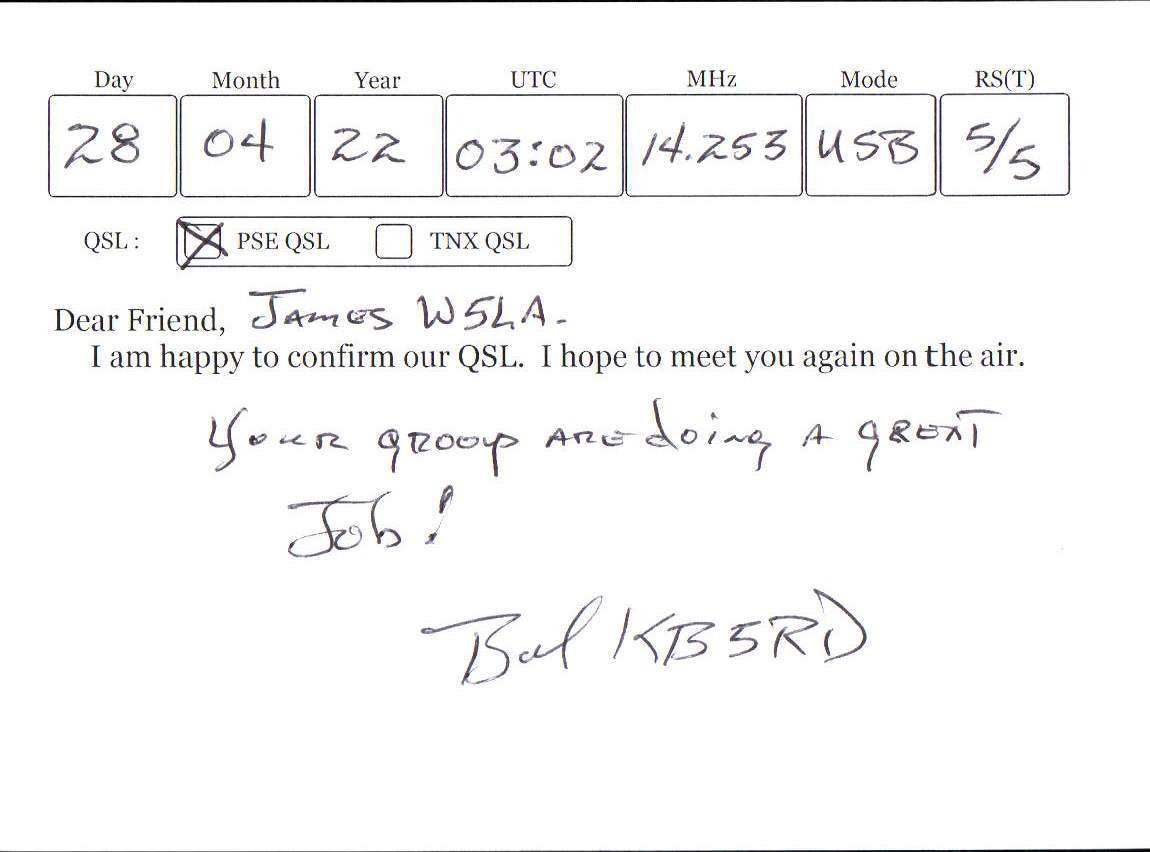 Day Month Year UTC MHz Mode RS(T)
28 04 22 03:02 14.253 USB 5/5
QSL : PSE QSL TNX QSL
Dear Friend, James W5LA-
I am happy to confirm our QSL. I hope to meet you again on the air.
Your group are doing a great
Job!
KB5RD